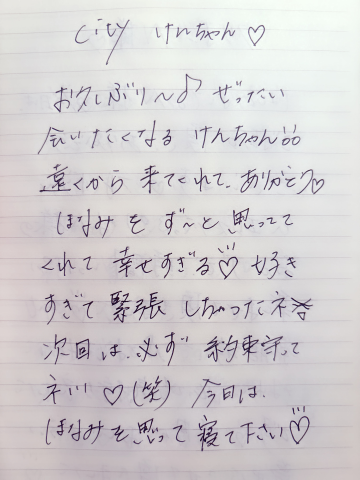 city けんちゃん♡
お久しぶり〜♪ ぜったい
会いたくなる けんちゃん
遠くから 来てくれて、ありがとう♡
ほなみを ず〜と 思ってて
くれて 幸せすぎる♡ 好き
すぎて 緊張 しちゃったネ
次回は、必ず 約束守って
ネ!!! ♡(笑) 今日は、
ほなみを思って 寝て下さい♡